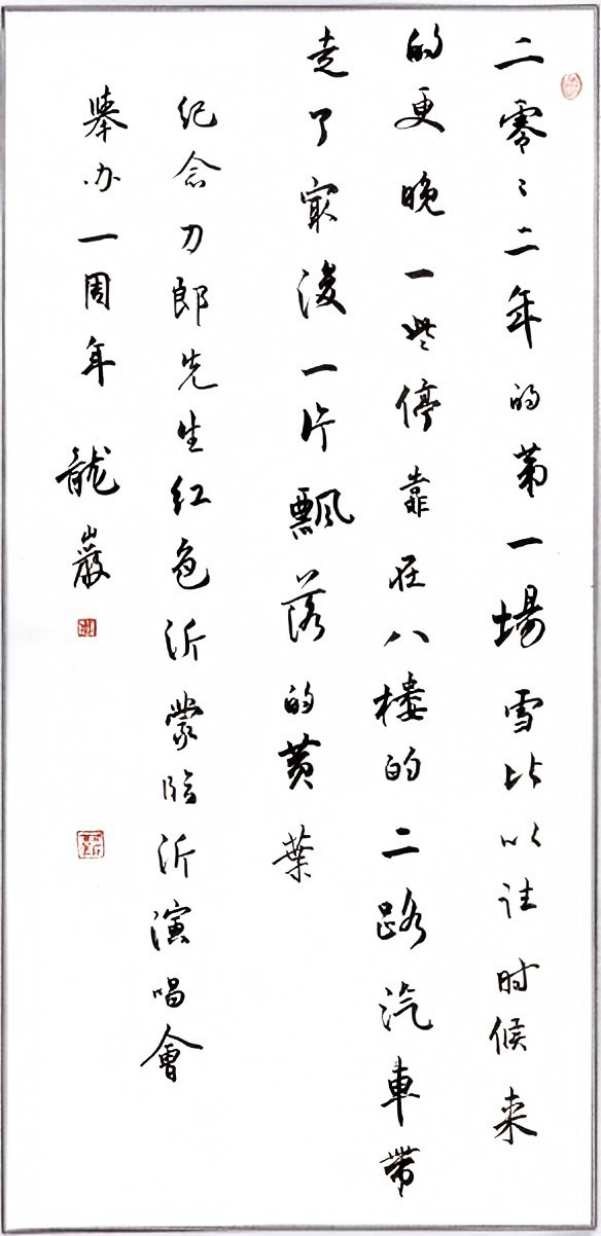 二零々二年的第一場雪比以往时候来
的更晚一些停靠在八樓的二路汽車帶
走了最後一片飄落的黄葉
纪念刀郎先生红色沂蒙临沂演唱會
舉办一周年 龍巖